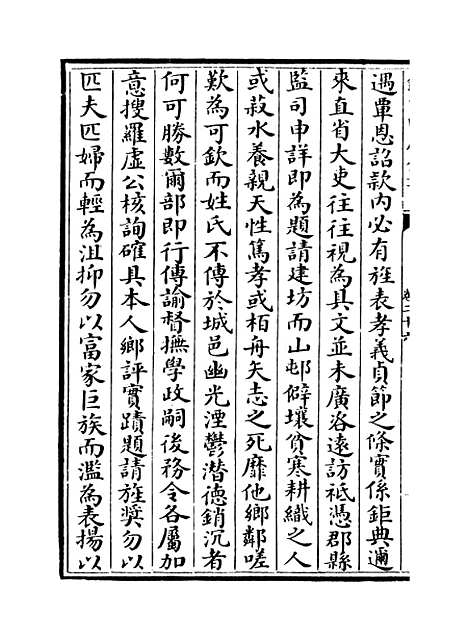 遇覃恩詔款内必有旌表孝義貞節之條實係鉅典邇
來直省大吏往往視為具文並未廣咨遠訪祗憑郡縣
監司申詳即為題請建坊而山邨僻壤貧寒耕織之人
或菽水養親天性篤孝或栢舟矢志之死靡他鄉鄰嗟
歎為可欽而姓氏不傳於城邑幽光湮鬱潛德銷沉者
何可勝數爾部即行傳諭督撫學政嗣後務令各屬加
意搜羅虛公核詢確具本人鄉評實蹟題請旌奬勿以
匹夫匹婦而輕為沮抑勿以富家巨族而濫為表揚以